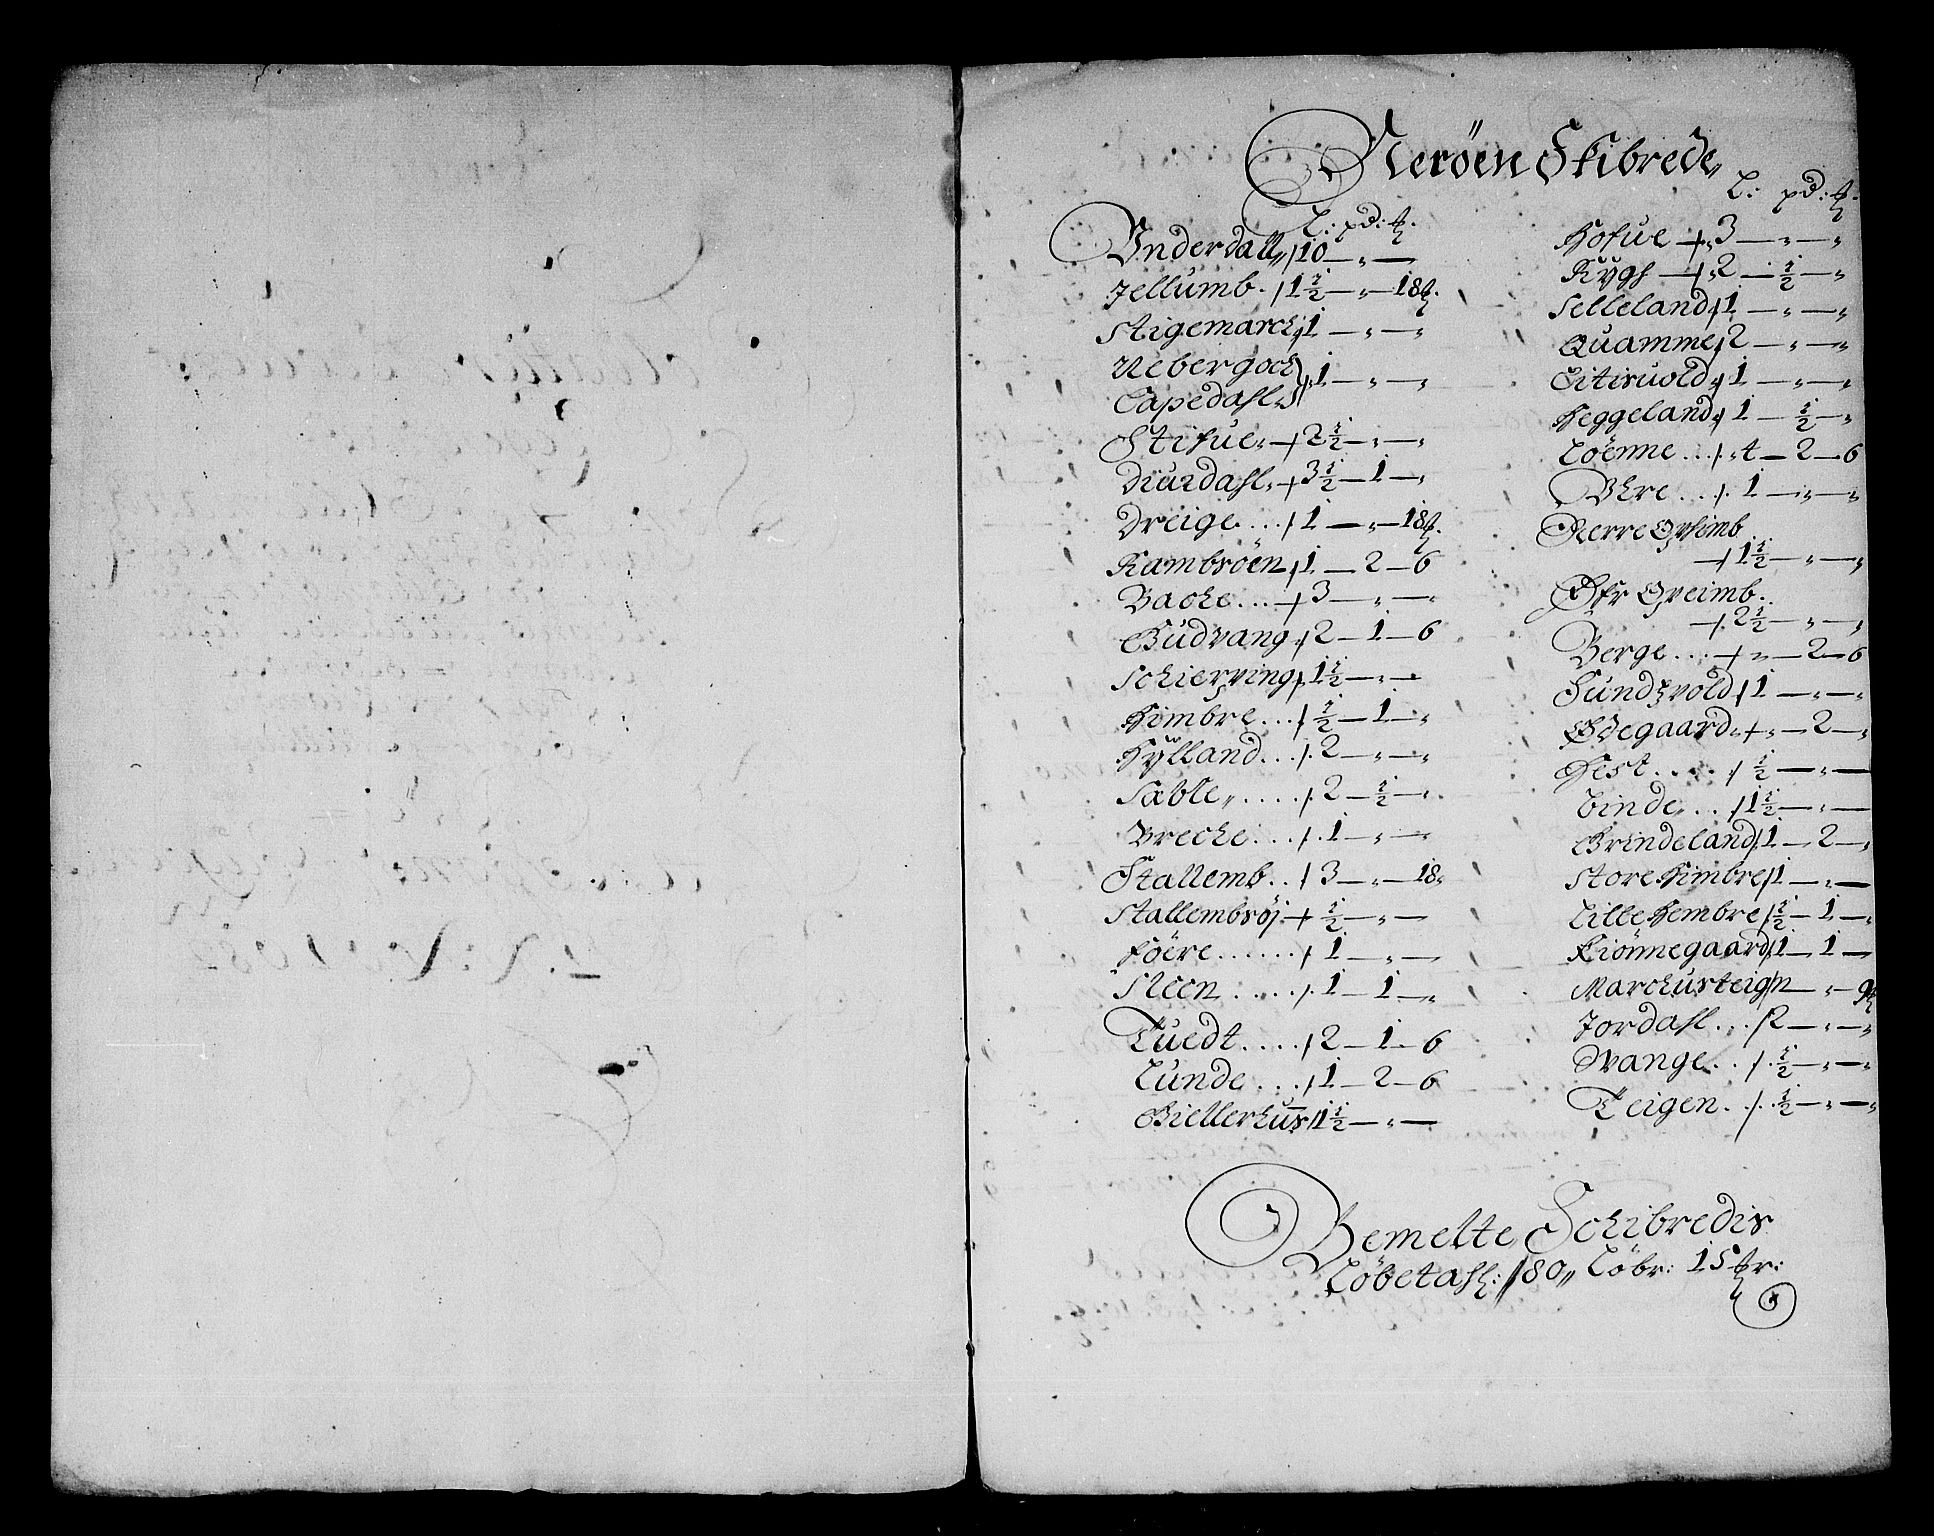 Neröen Skibrede
L: pd: ℔.
Vnderdall 10 — " —
Jellumb. 1 1/2 — " — 18 ℔.
Stigemarch 1 — " — "
Nebergoch
Capedahl 1 — " — "
Stifue 2 1/2 — " — "
Diurdahl 3 1/2 — 1 — "
Dreige... 1 — " — 18 ℔.
Rambsöen 1 — 2 — 6
Bache... 3 — " — "
Gudvang 2 — 1 — 6
Schierving 1 1/2 — " —
Himbre... 1/2 — 1 — "
Hylland... 2 — " — "
Sable..... 2 — 1/2 — "
Breche... 1 — " — "
Stallemb.. 3 — " — 18
Stallembsöj. 1/2 — " —
Föere...... 1 — " —
Steen..... 1 — 1 — "
Tuedt.... 2 — 1 — 6
Lunde... 1 — 2 — 6
Giellerhus 1 1/2 — " —
L: pd: ℔.
Hofue 3 — " — "
Rygh 2 — 1/2 — "
Selleland 1 — " — "
Quamme 2 — " — "
Litisuold 1 — " — "
Heggeland 1 — 1/2 — "
Löenne... 4 — 2 — 6
Vhre.... 1 — " — "
Nerre Grhimb
1 1/2 — " — "
Öfr Greimb.
2 1/2 — " — "
Berge... " — 2 — 6
Sundzvold 1 — " — "
Ödegaard " — 2 — "
Hest..... 1/2 — " —
Linde... 1 1/2 — " —
Grindeland 1 — 2 — "
Store Himbre 1 — " —
Lille Hembre 1/2 — 1 — "
Kiönnegaard 1 — 1 —
Marchusteign — " — 9 ℔
Jordahl... 2 — " — "
Ovange... 1/2 — " — "
Teigen... 1/2 — " — "
Bemelte Schibredis
Löbetahl: 180 Löbr: 15 ℔r: